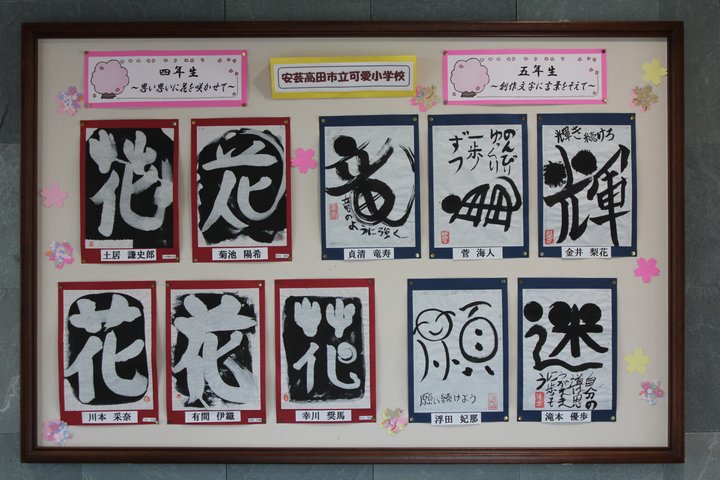 四年生
～思い思いに花を咲かせて～
安芸高田市立可愛小学校
五年生
～創作文字に言葉をそえて～
花
土居 謙史郎
花
菊池 陽希
竜
竜のように強く
貞清 竜寿
のんびり
ゆっくり
一歩
ずつ
菅 海人
輝き続けろ
輝
金井 梨花
花
川本 采奈
花
有間 伊織
花
幸川 奨馬
願
願い続けよう
浮田 妃那
迷
自分の
滝本 優歩